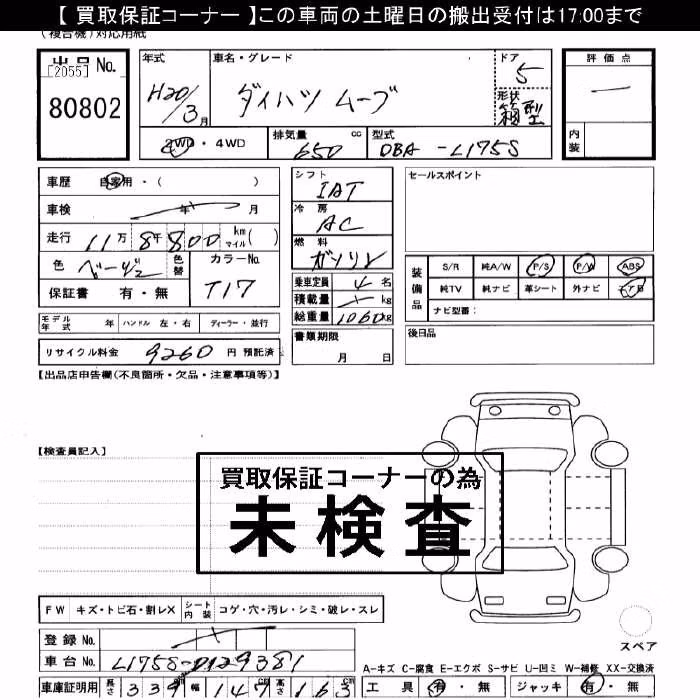 【 買取保証コーナー 】この車両の土曜日の搬出受付は17:00まで
(複合機)対応用紙
出品 No.
[2055]
80802
年式
H20/3月
車名・グレード
ダイハツ ムーブ
ドア
5
形状
箱型
評価点
内装
2WD ・ 4WD
排気量 cc
650
型式
DBA -L175S
車歴 自家用 ・ ( )
車検 年 月
走行 11万 8千 800 km マイル ( )
色 ベージュ 色替
カラーNo.
T17
保証書 有・無
シフト
IAT
冷房
AC
燃料
ガソリン
乗車定員 4 名
積載量 kg
総重量 1060 kg
書類期限
月 日
セールスポイント
装備品
S/R 純A/W P/S P/W ABS
純TV 純ナビ 革シート 外ナビ エアB
ナビ型番:
後日品
モデル年式 年 ハンドル 左・右 ディーラー・並行
リサイクル料金 9260 円 預託済
【出品店申告欄(不良箇所・欠品・注意事項等)】
【検査員記入】
買取保証コーナーの為
未検査
FW キズ・トビ石・割レX シート内装 コゲ・穴・汚レ・シミ・破レ・スレ
スペア
登録 No.
車台 No. L175S-0129381
A-キズ C-腐食 E-エクボ S-サビ U-凹ミ W-補修 XX-交換済
車庫証明用 長さ 339 cm 幅 147 cm 高さ 163 cm
工具 有・無 ジャッキ 有・無